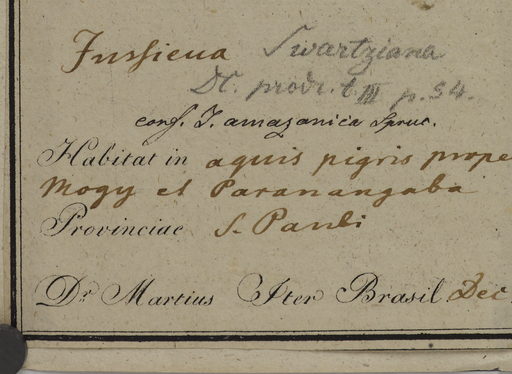 Jussieua Swartziana
DC. prodr. t. III p. 54.
conf. J. amazonica Spruc.
Habitat in aquis pigris prope
Mogy et Paranangaba
Provinciae S. Pauli
Dr. Martius Iter Brasil Dec.